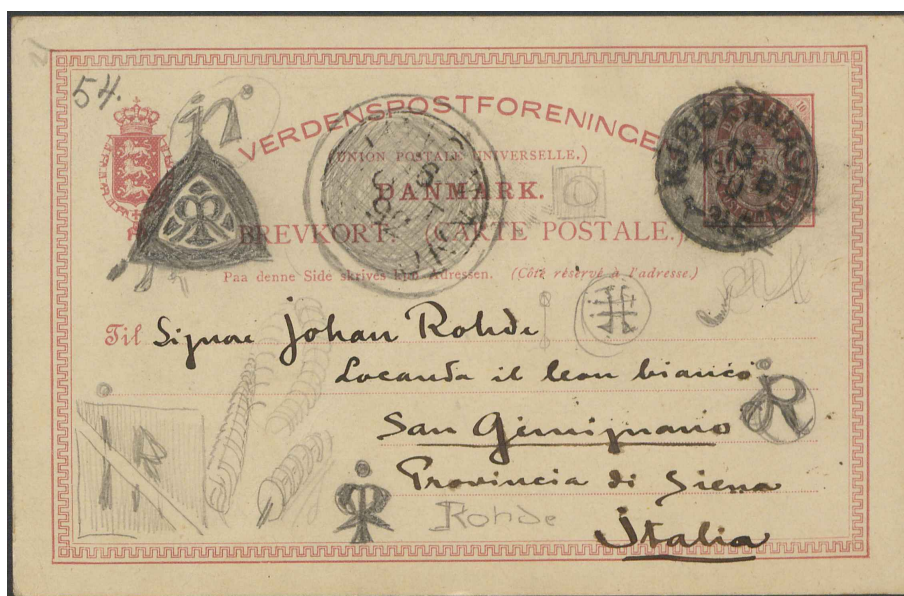 54.
VERDENSPOSTFORENINGEN
(UNION POSTALE UNIVERSELLE.)
DANMARK.
BREVKORT. (CARTE POSTALE.)
Paa denne Side skrives kun Adressen. (Côté réservé à l'adresse.)
KJØBENHAVN
Til Signore Johan Rohde
Locanda il leon bianco
San Gimignano
Provincia di Siena
Italia
R
Rohde